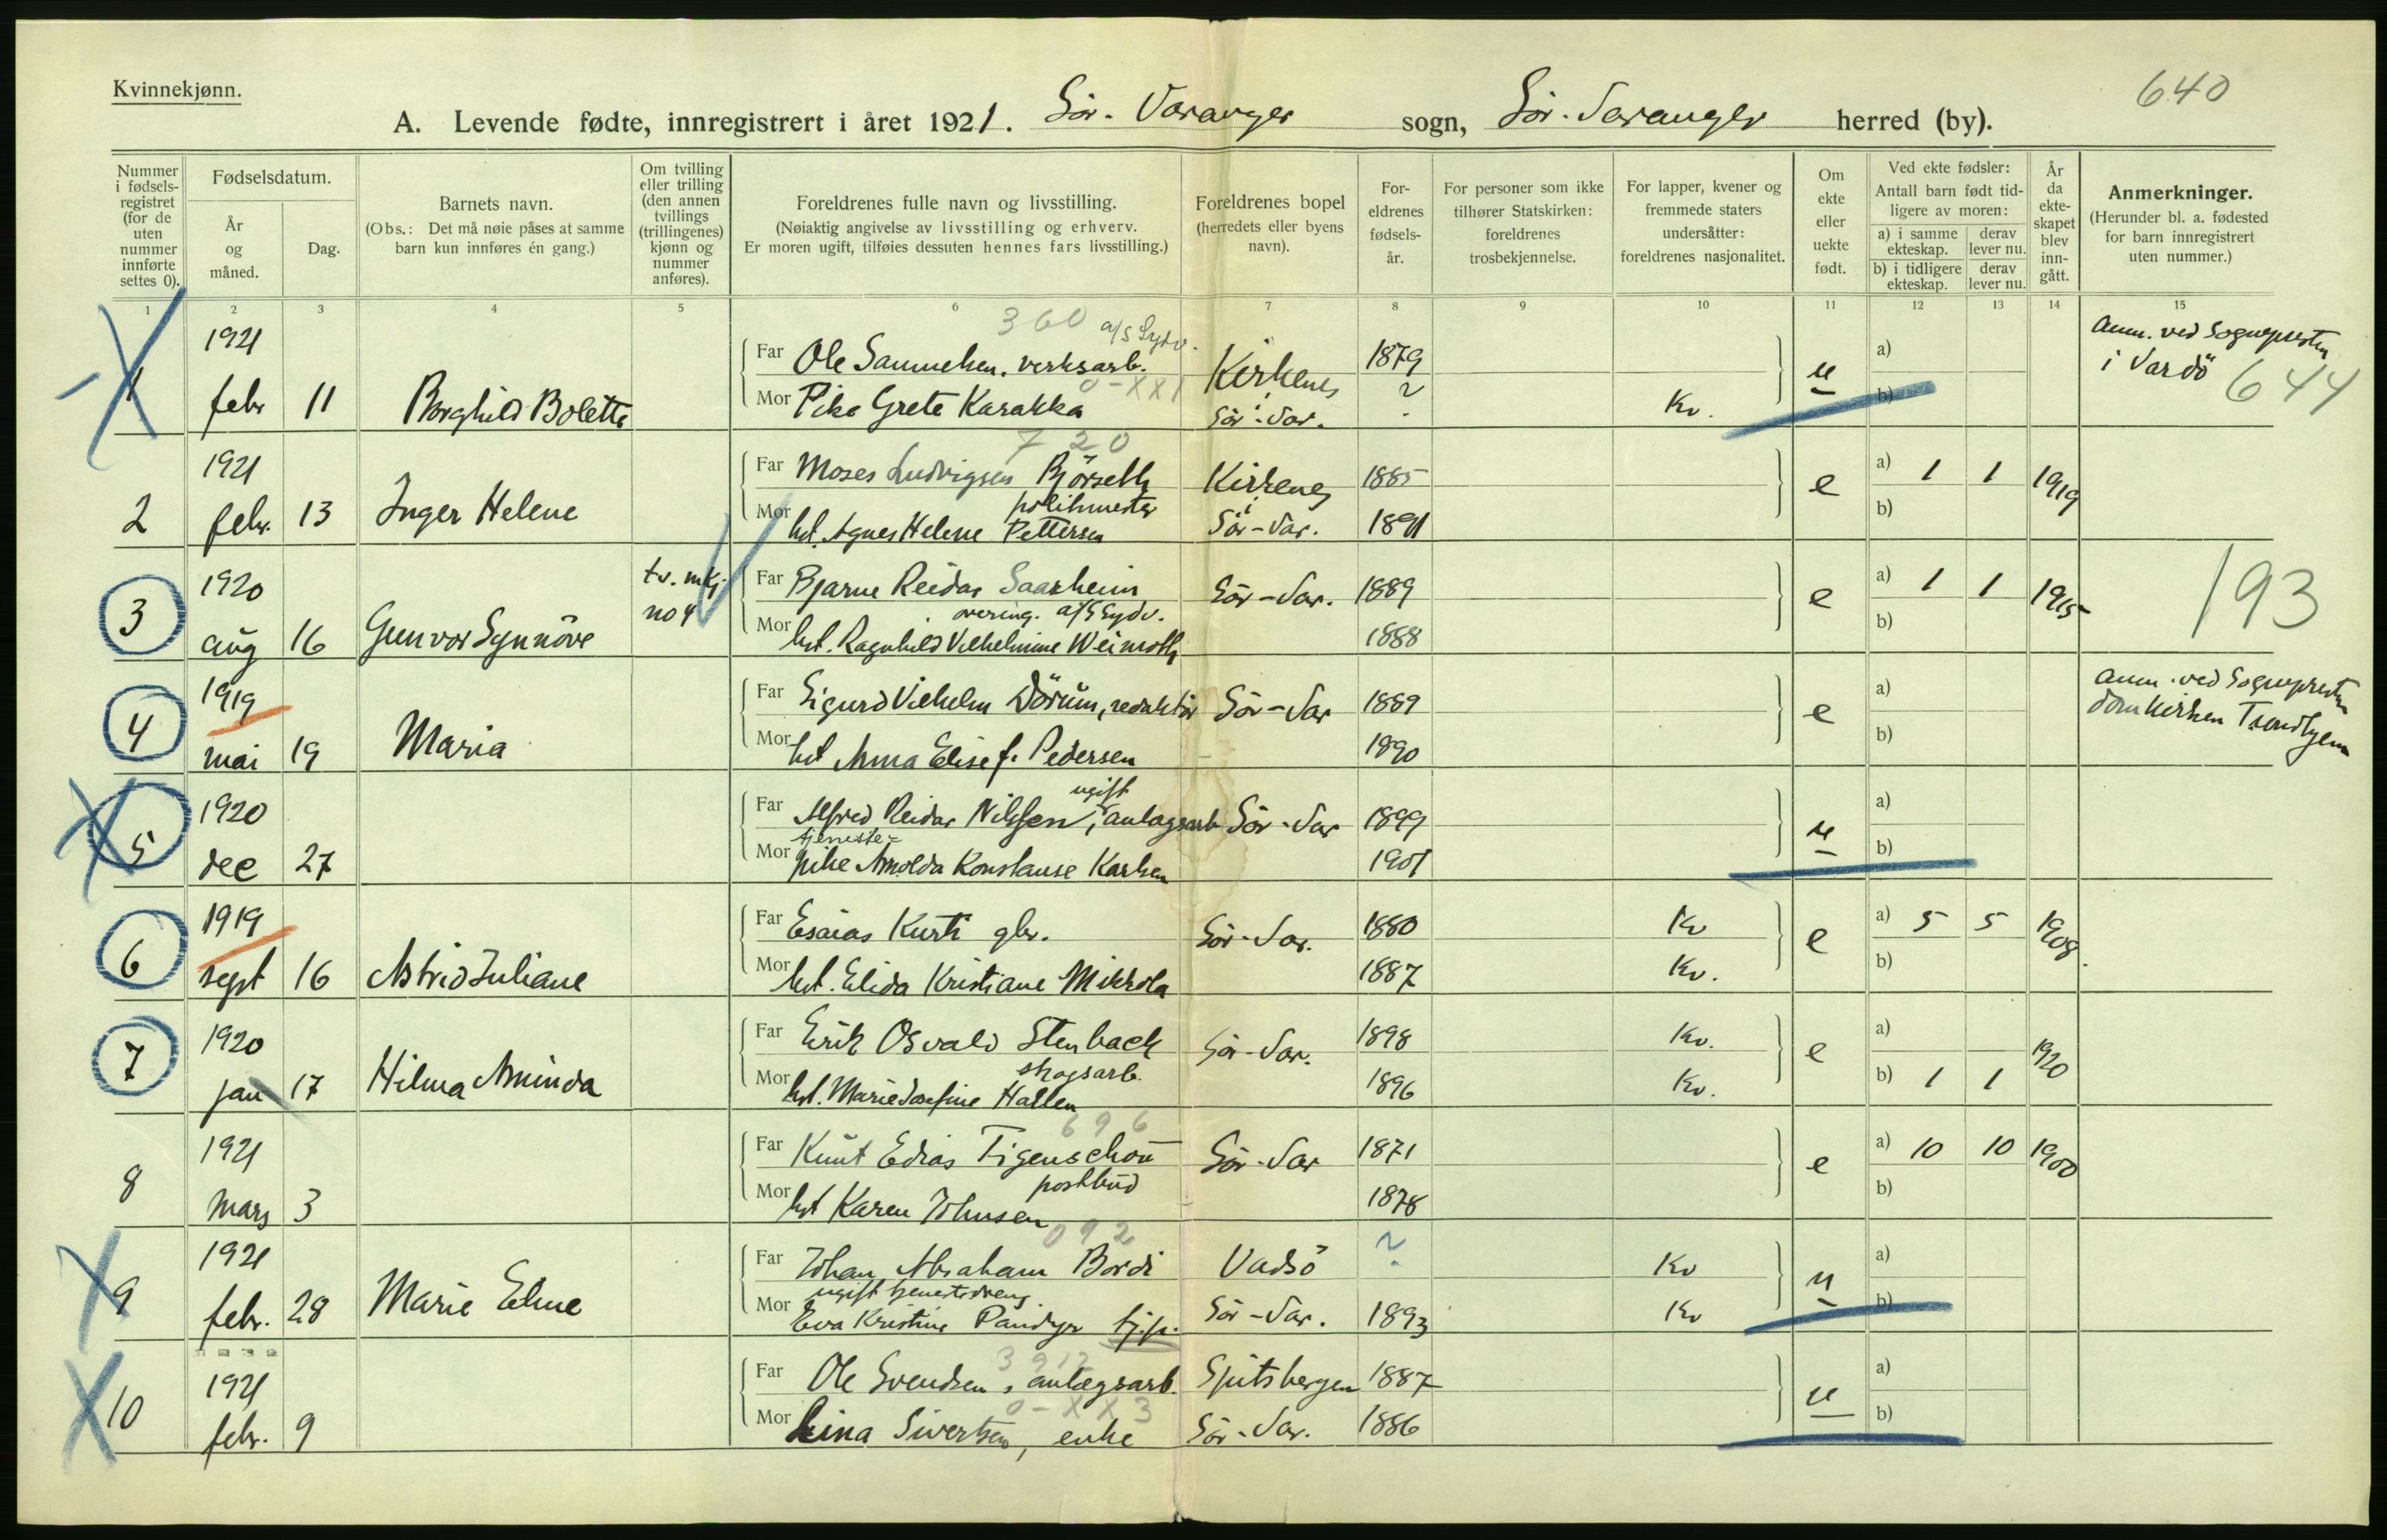 Kvinnekjønn.
640
A. Levende fødte, innregistrert i året 1921. Sör-Varanger sogn, Sör-Varanger herred (by).
Nummer i fødsels-registret (for de uten nummer innførte settes 0).
Fødselsdatum.
År og måned.
Dag.
Barnets navn.
(Obs.: Det må nøie påses at samme barn kun innføres én gang.)
Om tvilling eller trilling (den annen tvillings (trillingenes) kjønn og nummer anføres).
Foreldrenes fulle navn og livsstilling.
(Nøiaktig angivelse av livsstilling og erhverv.
Er moren ugift, tilføies dessuten hennes fars livsstilling.)
Foreldrenes bopel (herredets eller byens navn).
For-eldrenes fødsels-år.
For personer som ikke tilhører Statskirken: foreldrenes trosbekjennelse.
For lapper, kvener og fremmede staters undersåtter: foreldrenes nasjonalitet.
Om ekte eller uekte født.
Ved ekte fødsler:
Antall barn født tid-ligere av moren:
a) i samme ekteskap.
derav lever nu.
b) i tidligere ekteskap.
derav lever nu.
År da ekte-skapet blev inn-gått.
Anmerkninger.
(Herunder bl. a. fødested for barn innregistrert uten nummer.)
1 2 3 4 5 6 7 8 9 10 11 12 13 14 15
1 1921 febr 11 Borghild Bolette
360 a/S Sydv.
Far Ole Samuelsen, verksarb. Kirkenes 1879
0-XX1
Mor Pike Grete Karakka Sör-Var. ? Kv.
u a) b)
Anm. ved Sognepresten
i Vardö 644
2 1921 febr. 13 Inger Helene
720
Far Moses Ludvigsen Björseth Kirkenes 1885
politimester
Mor hst. Agnes Helene Pettersen Sör-Var. 1891
e a) 1 1 b) 1919
3 1920 aug 16 Gunvor Synnöve tv. mkj. no 4
Far Bjarne Reidar Saarheim Sör-Var. 1889
overing. a/S Sydv.
Mor hst. Ragnhild Vilhelmine Weimoth 1888
e a) 1 1 b) 1915
193
4 1919 mai 19 Maria
Far Sigurd Vilhelm Dörum, redaktör Sör-Var 1889
Mor hst Anna Elise f. Pedersen 1890
e a) b)
Anm. ved Sognepresten
Domkirken Trondhjem
5 1920 dec 27
ugift
Far Alfred Reidar Nilssen, anlagsarb Sör-Var 1899
tjeneste-
Mor pike Arnolda Konstanse Karlsen 1901
u a) b)
6 1919 sept 16 Astrid Juliane
Far Esaias Kurti gbr. Sör-Var. 1880 Kv
Mor hst. Elida Kristiane Mikkola 1887 Kv.
e a) 5 5 b) 1908.
7 1920 jan 17 Hilma Aminda
Far Erik Osvald Stenback Sör-Var. 1898 Kv.
skogsarb.
Mor hst. Marie Josefine Hallen 1896 Kv.
e a) b) 1 1 1920
8 1921 mars 3
696
Far Knut Edias Tigenschou Sör-Var 1871
postbud
Mor hst Karen Johnsen 1878
e a) 10 10 b) 1900
9 1921 febr. 28 Marie Eline
092
Far Johan Abraham Bordi Vadsö ? Kv
ugift tjenestedreng.
Mor Eva Kristine Pandyr tj.p. Sör-Var. 1893 Kv
u a) b)
10 1921 febr. 9
3912
Far Ole Svendsen, anlægsarb. Spitsbergen 1887
0-XX3
Mor Lina Sivertsen, enke Sör-Var. 1886
u a) b)